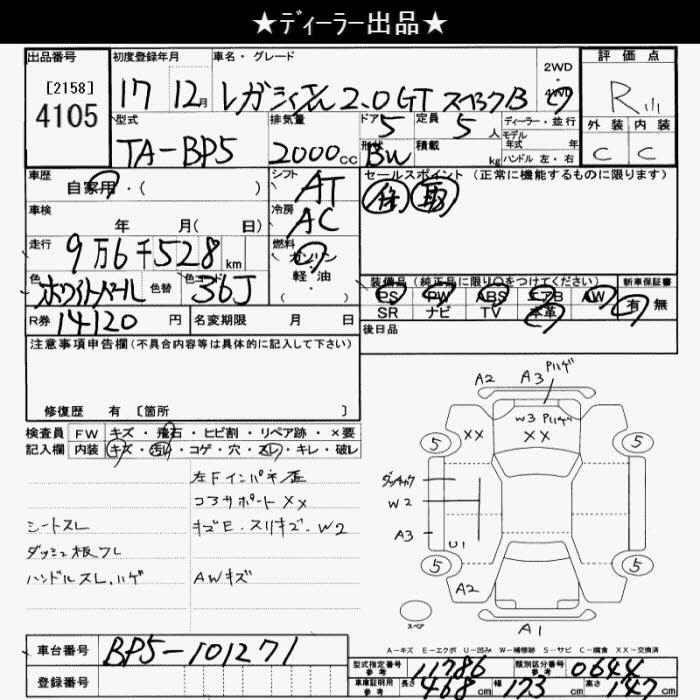 ★ディーラー出品★
出品番号 初度登録年月 車名・グレード 2WD 評価点
[2158]
4105
17 12月 レガシィ 2.0GT スペックB 4WD R
型式 排気量 ドア 定員 ディーラー・並行 外装 内装
5 5人 モデル年式 年
TA-BP5 2000cc 形状 BW 積載 kg ハンドル 左・右 C C
車歴 シフト セールスポイント (正常に機能するものに限ります)
自家用・( ) AT
車検 冷房
年 月( 日) AC
走行 9万6千528km 燃料 ガソリン
軽・油
色 ホワイトパール 色替 色コード 36J
装備品 (純正品に限り○をつけてください) 新車保証書
PS PW ABS エアB AW 有 無
SR ナビ TV 本革
R券 14120円 名変期限 月 日 後日品
注意事項申告欄(不具合内容等は具体的に記入して下さい)
修復歴 有 [箇所 ]
検査員記入欄 FW キズ・飛石・ヒビ割・リペア跡・×要
内装 キズ・汚れ・コゲ・穴・スレ・キレ・破レ
左下インパネ歪
コアサポートXX
シートスレ キズE.スリキズ.W2
ダッシュ板ワレ
ハンドルスレ.ハゲ AWキズ
A2 A3 Pハゲ
W3 Pハゲ
XX XX
5 5
W2
A3 U1
5 5
A2
スペア
A1
A-キズ E-エクボ U-凹み W-補修跡 S-サビ C-腐食 XX-交換済
車台番号 BP5-101271
登録番号
型式指定番号 参考 11786 類別区分番号 参考 0644
車庫証明用 参考 長さ 468cm 幅 173cm 高さ 147cm